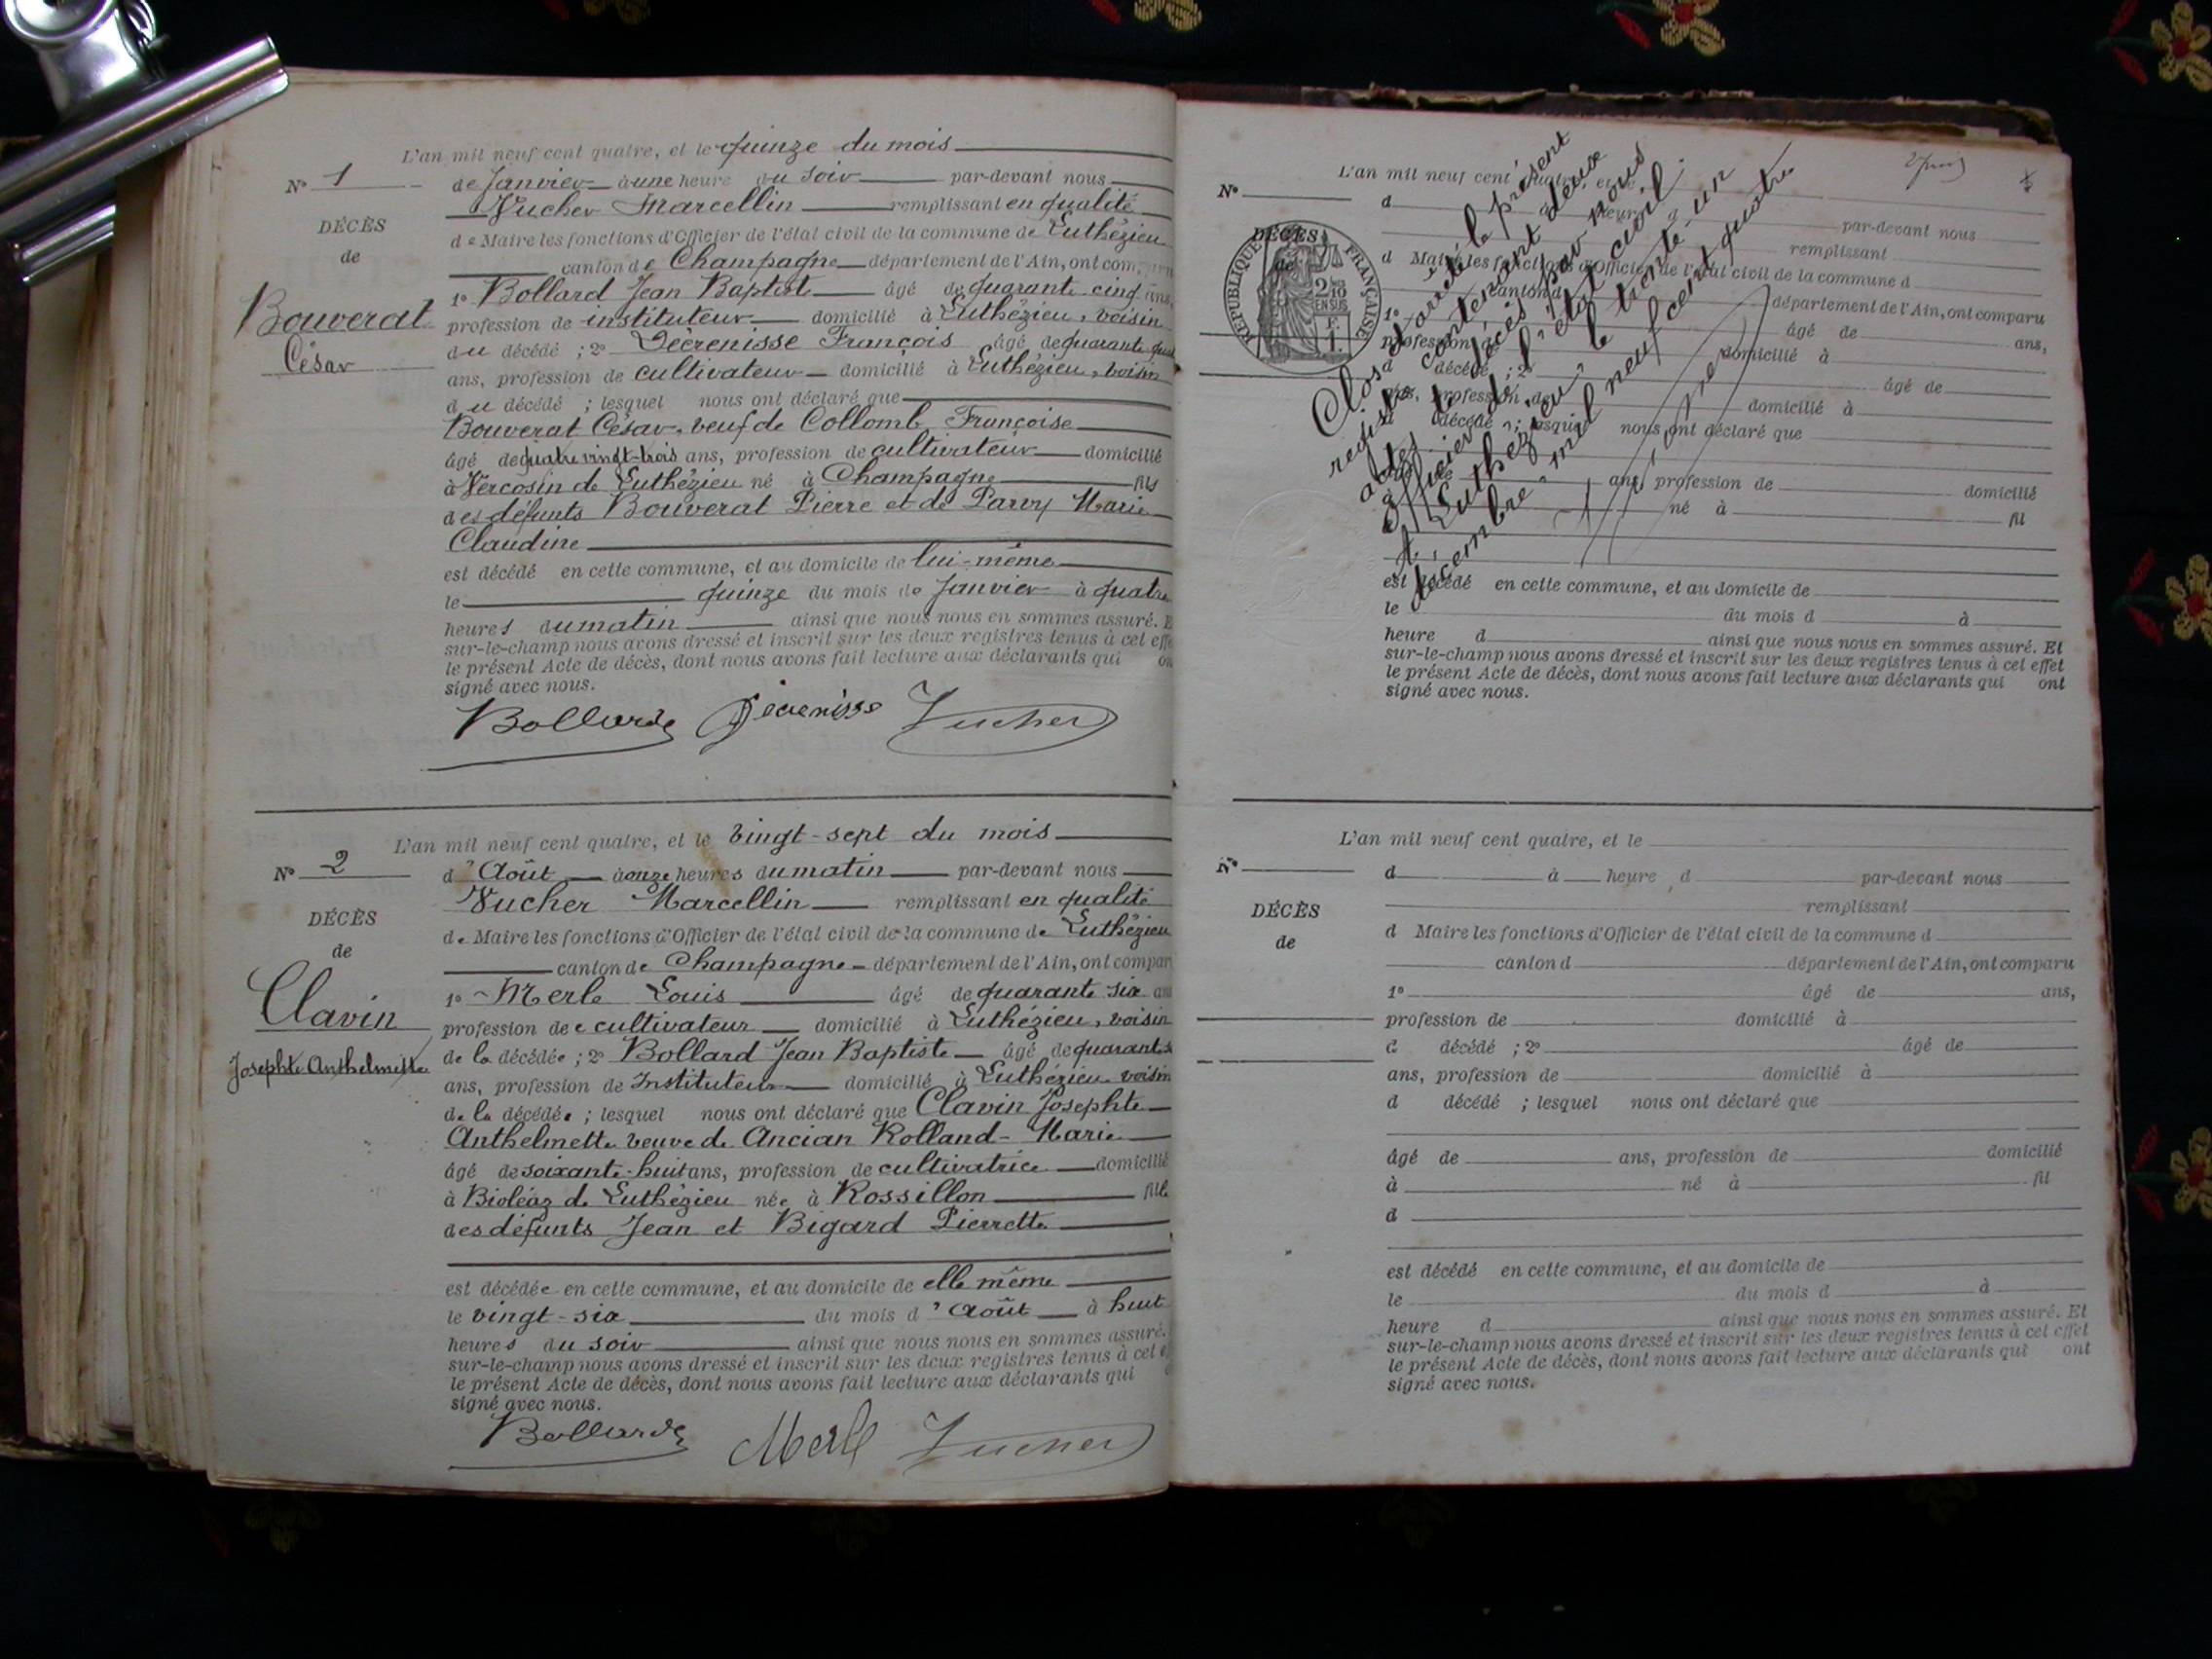 L'an mil neuf cent quatre, et le quinze du mois
N° 1
de Janvier à une heure du soir par-devant nous
Vucher Marcellin remplissant en qualité
DÉCÈS
de Maire les fonctions d'Officier de l'état civil de la commune de Luthézieu
de
canton de Champagne département de l'Ain, ont com
1° Bollard Jean Baptiste âgé de quarante cinq ans,
Bouverat
profession de instituteur domicilié à Luthézieu, voisin
César
du décédé ; 2° Décrenisse François âgé de quarante
ans, profession de cultivateur domicilié à Luthézieu, voisin
du décédé ; lesquel nous ont déclaré que
Bouverat César, veuf de Collomb Françoise
âgé de quatre vingt-trois ans, profession de cultivateur domicilié
à Vercosin de Luthézieu né à Champagne fils
des défunts Bouverat Pierre et de Parvy Marie
Claudine
est décédé en cette commune, et au domicile de lui-même
le quinze du mois de Janvier à quatre
heures du matin ainsi que nous nous en sommes assuré. E
sur-le-champ nous avons dressé et inscrit sur les deux registres tenus à cet effe
le présent Acte de décès, dont nous avons fait lecture aux déclarants qui on
signé avec nous.
Bollard Décrenisse Vucher
L'an mil neuf cent quatre, et le vingt-sept du mois
N° 2
d'Août à onze heures du matin par-devant nous
Vucher Marcellin remplissant en qualité
DÉCÈS
de Maire les fonctions d'Officier de l'état civil de la commune de Luthézieu
de
canton de Champagne département de l'Ain, ont compar
1° Merle Louis âgé de quarante six an
Clavin
profession de cultivateur domicilié à Luthézieu, voisin
Josephte Anthelmette
de la décédée ; 2° Bollard Jean Baptiste âgé de quarante
ans, profession de Instituteur domicilié à Luthézieu voisin
de la décédée ; lesquel nous ont déclaré que Clavin Josephte
Anthelmette veuve de Ancian Rolland-Marie
âgé de soixante-huit ans, profession de cultivatrice domicilié
à Bioléaz de Luthézieu née à Rossillon fille
des défunts Jean et Bigard Pierrette
est décédée en cette commune, et au domicile de elle même
le vingt-six du mois d'Août à huit
heures du soir ainsi que nous nous en sommes assuré.
sur-le-champ nous avons dressé et inscrit sur les deux registres tenus à cet e
le présent Acte de décès, dont nous avons fait lecture aux déclarants qui
signé avec nous.
Bollard Merle Vucher
L'an mil neuf cent quatre, et le
N°
d à heure d par-devant nous
remplissant
DÉCÈS
RÉPUBLIQUE FRANÇAISE
2/10 EN SUS
d Maire les fonctions d'Officier de l'état civil de la commune d
canton d département de l'Ain, ont comparu
1° âgé de ans,
profession de domicilié à
d décédé ; 2° âgé de
ans, profession de domicilié à
d décédé ; lesquel nous ont déclaré que
âgé de ans, profession de domicilié
à né à fil
est décédé en cette commune, et au domicile de
le du mois d à
heure d ainsi que nous nous en sommes assuré. Et
sur-le-champ nous avons dressé et inscrit sur les deux registres tenus à cet effet
le présent Acte de décès, dont nous avons fait lecture aux déclarants qui ont
signé avec nous.
Clos et arrêté le présent
registre contenant deux
actes de décès par nous
officier de l'état civil.
A Luthézieu, le trente-un
décembre mil neuf cent quatre
L'an mil neuf cent quatre, et le
N°
d à heure d par-devant nous
remplissant
DÉCÈS
d Maire les fonctions d'Officier de l'état civil de la commune d
de
canton d département de l'Ain, ont comparu
1° âgé de ans,
profession de domicilié à
d décédé ; 2° âgé de
ans, profession de domicilié à
d décédé ; lesquel nous ont déclaré que
âgé de ans, profession de domicilié
à né à fil
d
est décédé en cette commune, et au domicile de
le du mois d à
heure d ainsi que nous nous en sommes assuré. Et
sur-le-champ nous avons dressé et inscrit sur les deux registres tenus à cet effet
le présent Acte de décès, dont nous avons fait lecture aux déclarants qui ont
signé avec nous.